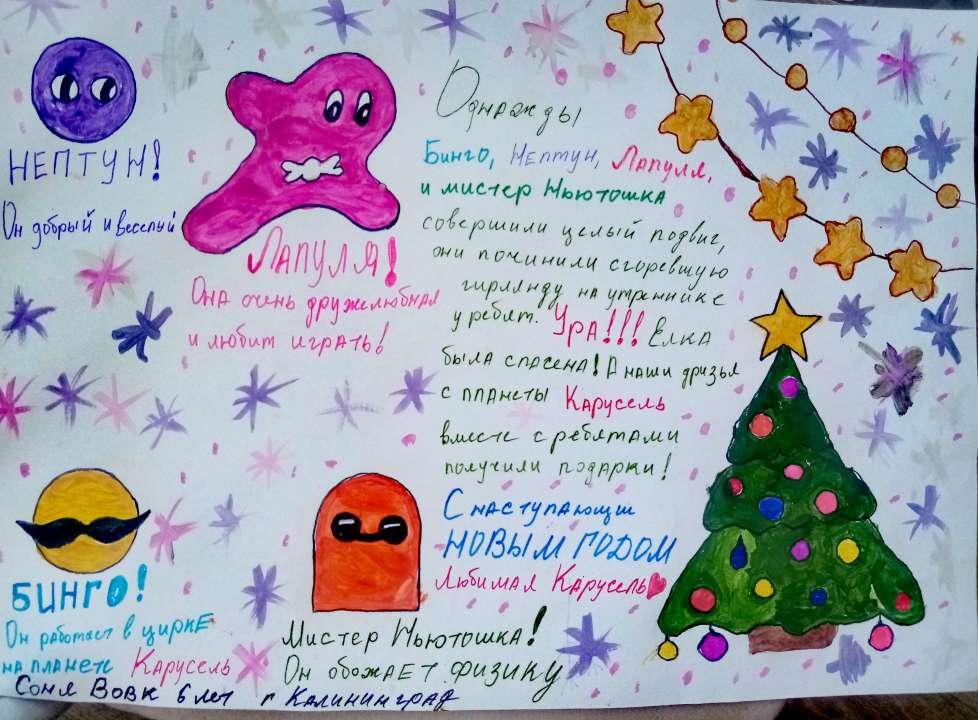 НЕПТУН!
Он добрый и веселый
ЛАПУЛЯ!
Она очень дружелюбная
и любит играть!
Однажды
Бинго, Нептун, Лапуля,
и мистер Ньютошка
совершили целый подвиг,
они починили сгоревшую
гирлянду на утреннике
у ребят. Ура!!! Ёлка
была спасена! А наши друзья
с планеты Карусель
вместе с ребятами
получили подарки!
С наступающим
НОВЫМ ГОДОМ
Любимая Карусель
БИНГО!
Он работает в цирке
на планете Карусель
Мистер Ньютошка!
Он обожает физику
Соня Вовк 6 лет г Калининград